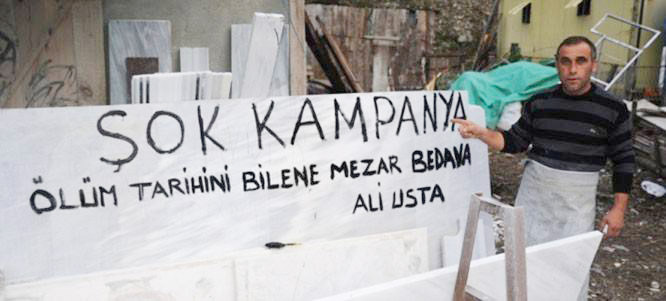 ŞOK KAMPANYA
ÖLÜM TARİHİNİ BİLENE MEZAR BEDAVA
ALİ USTA